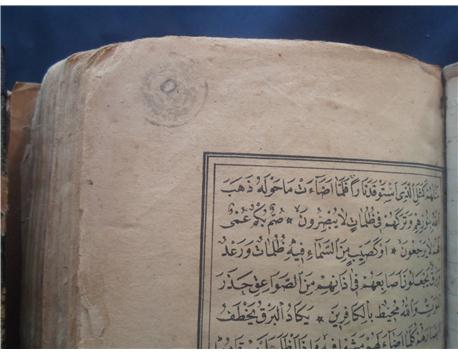 كمثل الذي استوقد نارا فلما اضاءت ما حوله ذهب
بنورهم وتركهم في ظلمات لا يبصرون * صم بكم عمى
لا يرجعون * او كصيب من السماء فيه ظلمات ورعد
يجعلون اصابعهم في اذانهم من الصواعق حذر
والله محيط بالكافرين * يكاد البرق يخطف